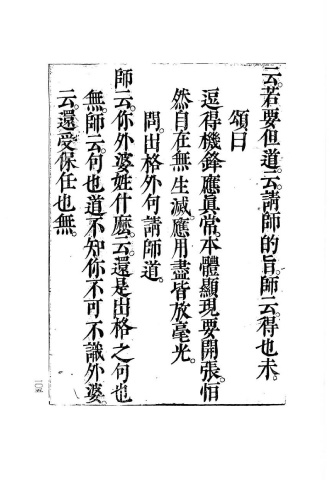 云。若要但道。云。請師的旨。師云。得也未。
頌曰
逗得機鋒應真常。本體顯現要開張。恒
然自在無生滅。應用盡皆放毫光。
問。出格外句請師道。
師云。你外婆姓什麼。云。還是出格之句也
無。師云。何也道。不知你不可不識外婆。
云。還受保任也無。